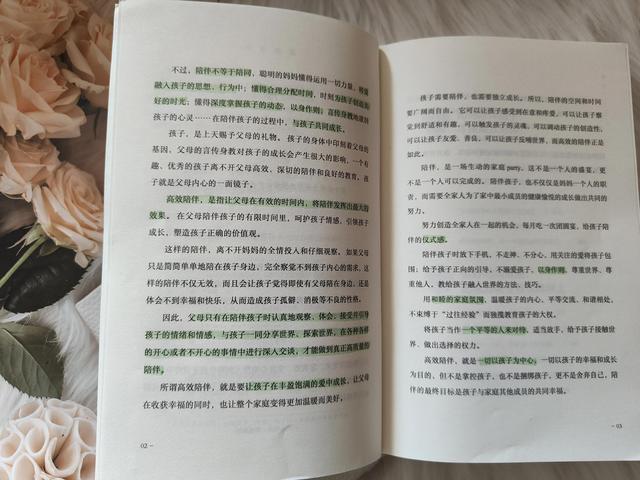 不过，陪伴不等于陪同，聪明的妈妈懂得运用一切力量，
融入孩子的思想、行为中；懂得合理分配时间，时刻为孩子创造美
好的时光；懂得深度掌握孩子的动态，以身作则，言传身教地滋润
孩子的心灵……在陪伴孩子的过程中，与孩子共同成长。
孩子，是上天赐予父母的礼物。孩子的身体中印刻着父母的
基因，父母的言传身教对孩子的成长会产生很大的影响。一个有
趣、优秀的孩子离不开父母高效、深切的陪伴和良好的教育。孩
子就是父母内心的一面镜子。
高效陪伴，是指让父母在有效的时间内，将陪伴发挥出最大的
效果。在父母陪伴孩子的有限时间里，呵护孩子情感，引领孩子
成长，塑造孩子正确的价值观。
这样的陪伴，离不开妈妈的全情投入和仔细观察。如果父母
只是简简单单地陪在孩子身边，完全察觉不到孩子内心的需求，这
样的陪伴不仅无效，而且会让孩子觉得即使有父母陪在身边，还是
体会不到幸福和快乐，从而造成孩子孤僻、消极等不良的性格。
因此，父母只有在陪伴孩子时认真地观察、体会，接受并引导
孩子的情绪和情感，与孩子一同分享世界、探索世界，在各种各样
的开心或者不开心的事情中进行深入交谈，才能做到真正高质量的
陪伴。
所谓高效陪伴，就是要让孩子在丰盈饱满的爱中成长，让父母
在收获幸福的同时，也让整个家庭变得更加温暖而美好。
02 –
孩子需要陪伴，也需要独立成长。所以，陪伴的空间和时间
要广阔而自由。它可以让孩子感受到在意和疼爱，可以让孩子察
觉到舒适和有趣，可以触发孩子的灵魂，可以调动孩子的创造性，
可以让孩子友爱、善良，可以让孩子反哺世界，而高效的陪伴正是
如此。
陪伴，是一场生动的家庭 party。这不是一个人的盛宴，更
不是一个人可以完成的。陪伴孩子，也不仅仅是妈妈一个人的职
责，而需要全家人为了家中最小成员的健康愉悦的成长做出共同的
努力。
努力创造全家人在一起的机会，每月吃一次团圆宴，给孩子陪
伴的仪式感。
陪伴孩子时放下手机，不走神、不分心，用关注的爱将孩子包
围；给予孩子正向的引导，不溺爱孩子，以身作则，尊重世界、尊
重他人，教给孩子融入世界的方法、技巧。
用和睦的家庭氛围，温暖孩子的内心，平等交流，和谐相处，
不束缚于“过往经验”而勉强教育孩子的大权。
将孩子当作一个平等的人来对待，适当放手，给予孩子接触世
界、做出选择的权力。
高效陪伴，就是一切以孩子为中心，一切以孩子的幸福和成长
为目的，但不是掌控孩子，也不是捆绑孩子，更不是舍弃自己，陪
伴的最终目标是孩子与家庭其他成员的共同幸福。
– 03